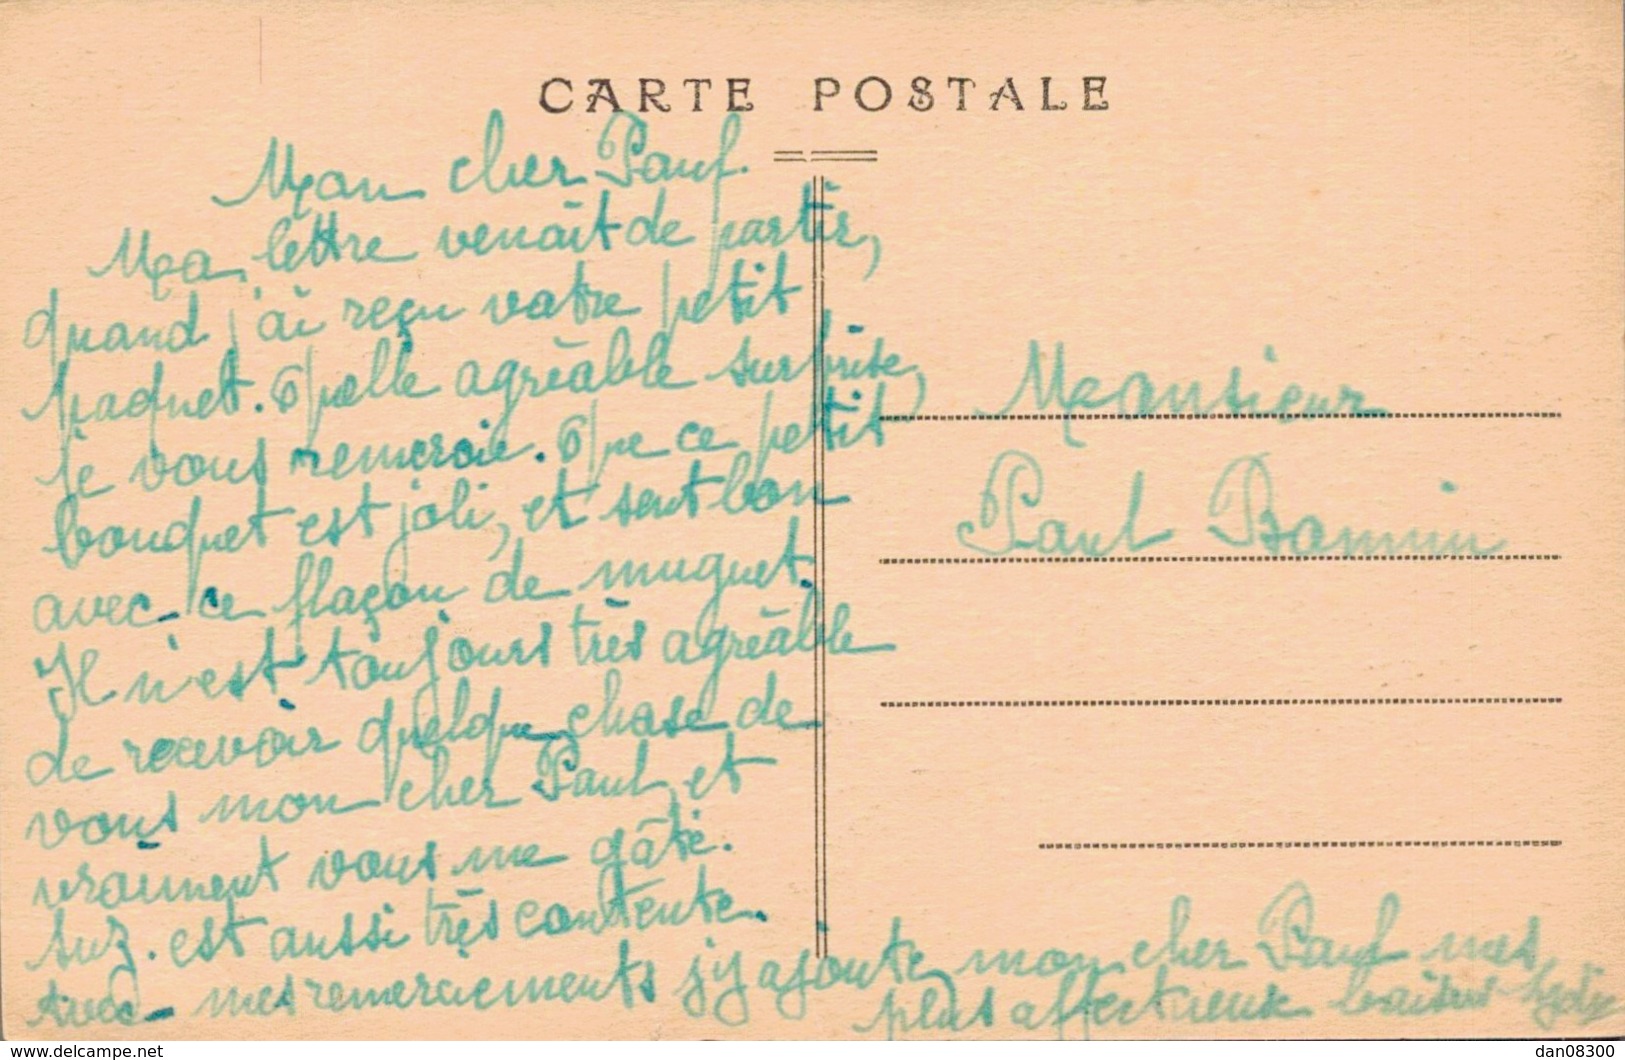 CARTE POSTALE
Mon cher Paul.
Ma lettre venait de partir,
quand j'ai reçu votre petit
paquet. Quelle agréable surprise,
je vous remercie. Que ce petit
bouquet est joli, et sent bon
avec ce flaçon de muguet.
Il n'est toujours très agréable
de recevoir quelque chose de
vous mon cher Paul, et
vraiment vous me gâté.
Suz. est aussi très contente.
Avec mes remerciements j'y ajoute, mon cher Paul mes
plus affectueux baisers
Monsieur
Paul
www.delcampe.net
dan08300